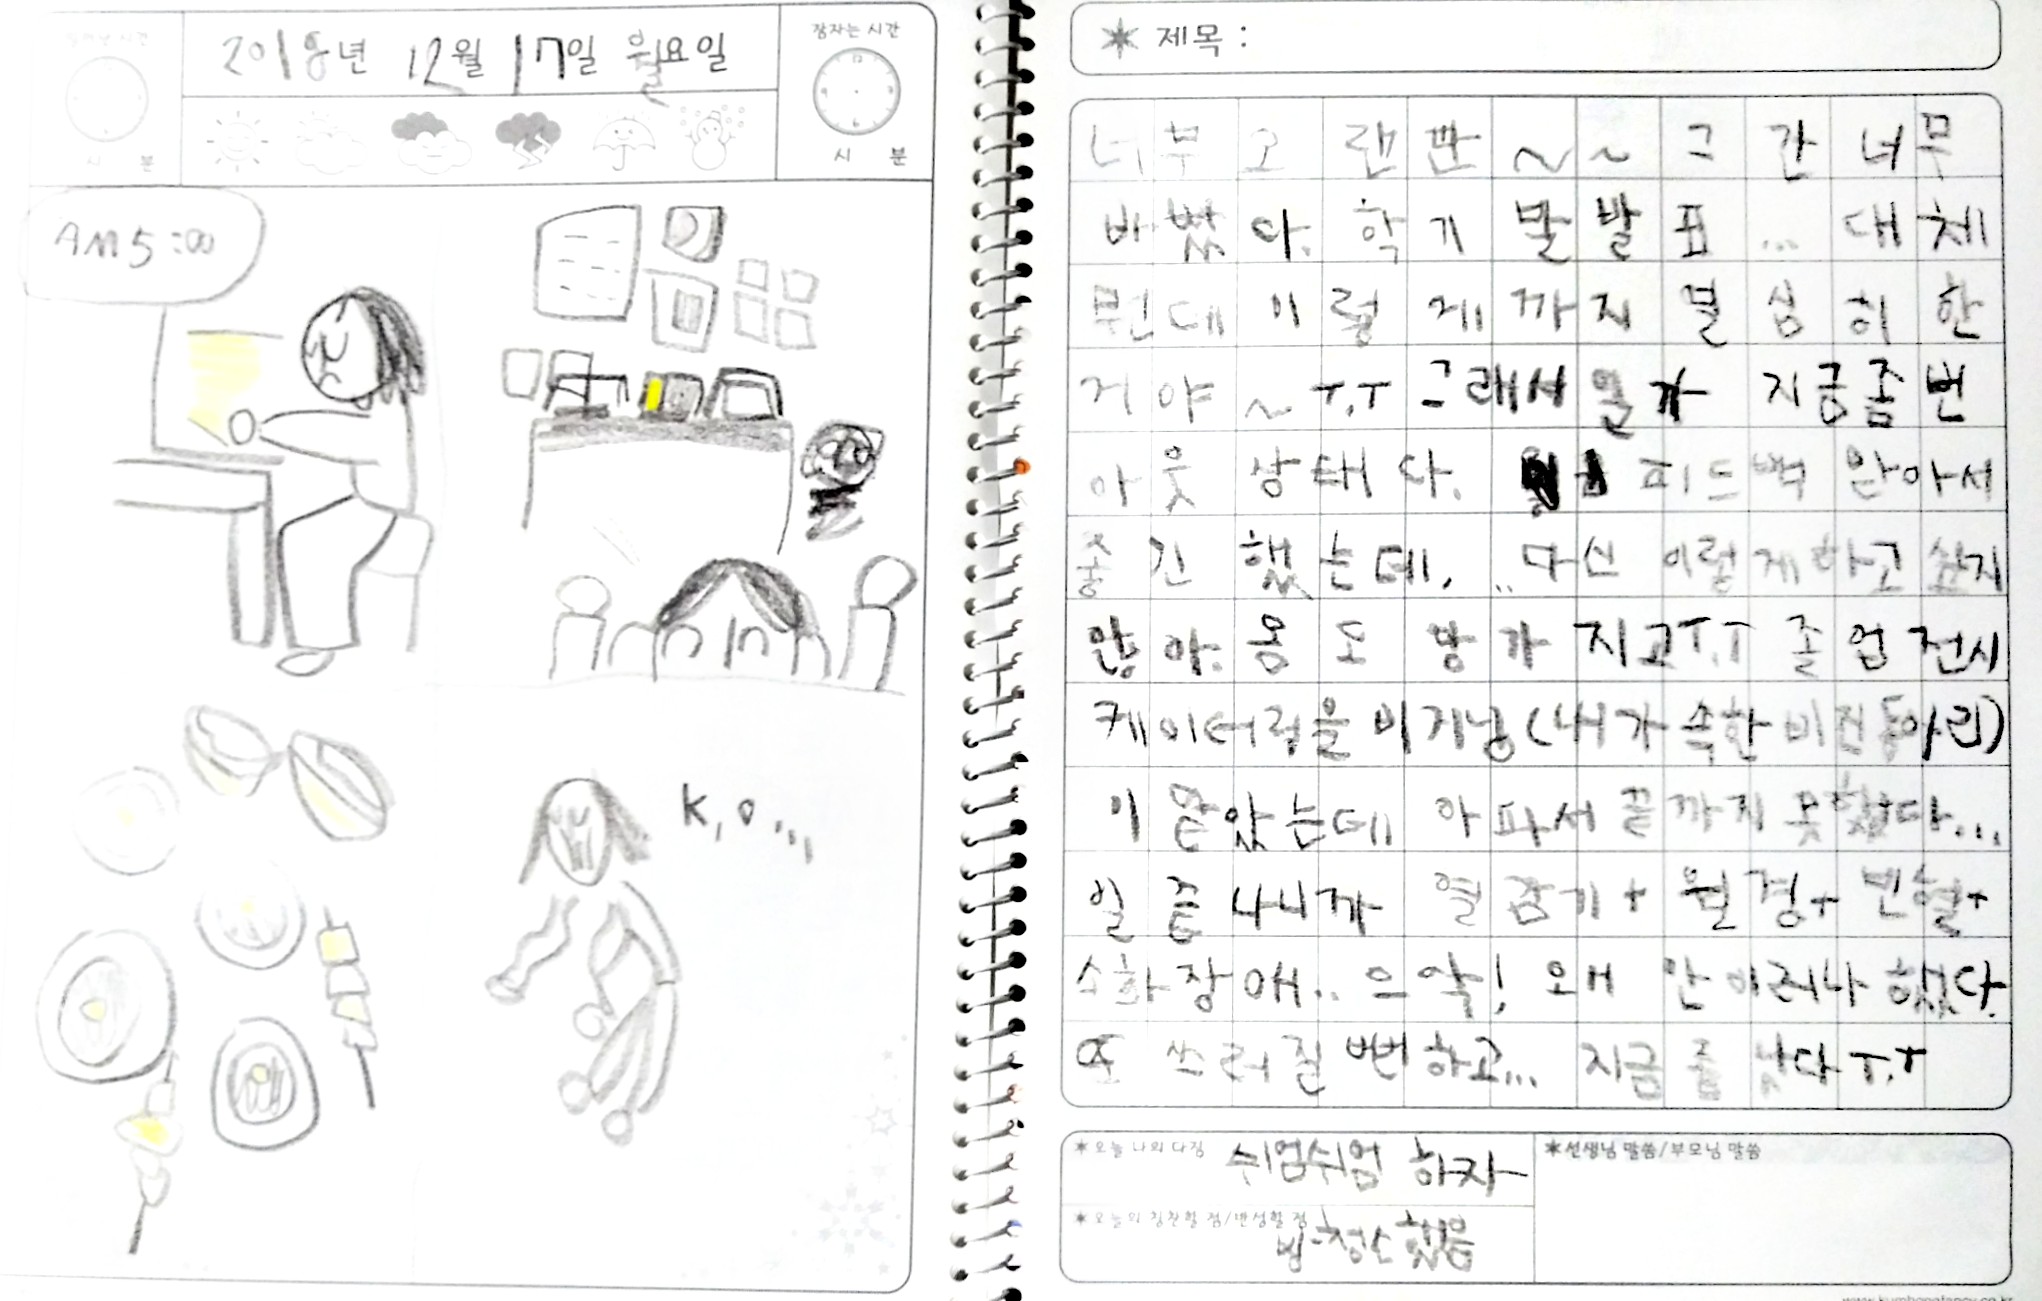 잠자는 시간
2018년 12월 17일 월요일
시 분
시 분
AM 5:00
K,O...,
제목 :
너무 오랜만~~ 그간 너무
바빴다. 학기말발표... 대체
뭔데 이렇게까지 열심히 한
거야~ T.T 그래서일까 지금좀번
아웃 상태다. 피드백 받아서
좋긴 했는데. ..다신 이렇게하고 싶지
않아. 몸도 망가지고T.T 졸업전시
케이터링을 비기닝(내가 속한 비건동아리)
이 맡았는데 아파서 끝까지 못했다...
일 끝나니까 열감기+ 월경+ 빈혈+
소화장애.. 으악! 왜 안이러나 했다.
또 쓰러질 뻔하고... 지금 좀 낫다 T.T
*오늘 나의 다짐 쉬엄쉬엄 하자
*오늘의 칭찬할 점/반성할 점
청소했음
*선생님 말씀/부모님 말씀